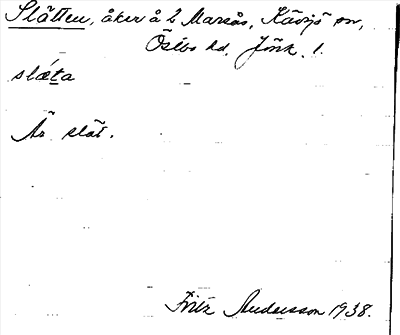 Slätten, åker å 2 Marsås, Kävsjö sn,
Östbo hd. Jönk. l.
slæ̀ta
Är slät.
Fritz Andersson 1938.